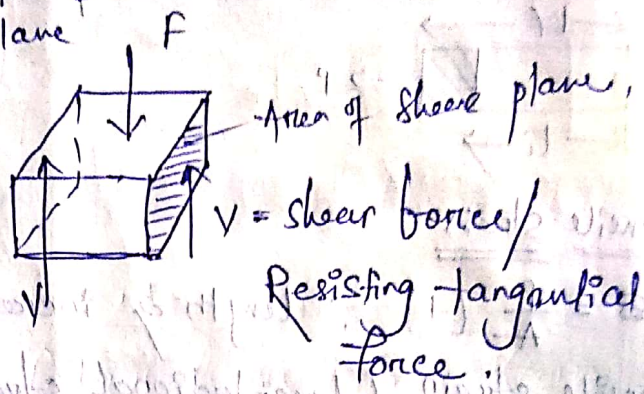 lane
F
Area of Shear plane,
V = shear force/
Resisting tangential
force.
V